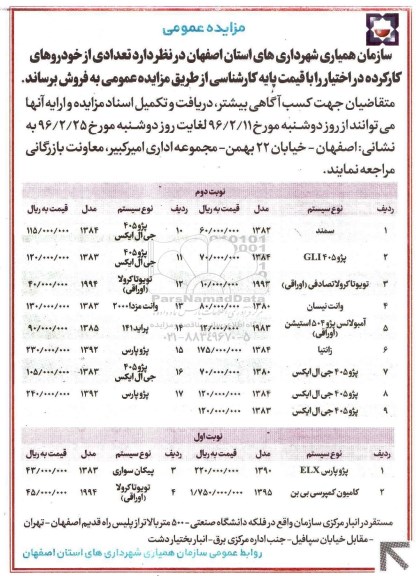 مزایده عمومی
سازمان همیاری شهرداری های استان اصفهان در نظر دارد تعدادی از خودروهای
کارکرده در اختیار را با قیمت پایه کارشناسی از طریق مزایده عمومی به فروش برساند.
متقاضیان جهت کسب آگاهی بیشتر، دریافت و تکمیل اسناد مزایده و ارایه آنها
می توانند از روز دوشنبه مورخ ۹۶/۲/۱۱ لغایت روز دوشنبه مورخ ۹۶/۲/۲۵ به
نشانی: اصفهان - خیابان ۲۲ بهمن- مجموعه اداری امیرکبیر، معاونت بازرگانی
مراجعه نمایند.
نوبت دوم
ردیف نوع سیستم مدل قیمت به ریال ردیف نوع سیستم مدل قیمت به ریال
۱ سمند ۱۳۸۲ ۶۰/۰۰۰/۰۰۰ ۱۰ پژو ۴۰۵ جی ال ایکس ۱۳۸۴ ۱۱۵/۰۰۰/۰۰۰
۲ پژو ۴۰۵ GLI ۱۳۸۴ ۷۰/۰۰۰/۰۰۰ ۱۱ پژو ۴۰۵ جی ال ایکس ۱۳۸۳ ۱۲۰/۰۰۰/۰۰۰
۳ تویوتا کرولا تصادفی (اوراقی) ۱۹۹۳ ۱۰/۰۰۰/۰۰۰ ۱۲ تویوتا کرولا (اوراقی) ۱۹۹۴ ۴۰/۰۰۰/۰۰۰
۴ وانت نیسان ۱۳۸۰ ۸۰/۰۰۰/۰۰۰ ۱۳ وانت مزدا ۲۰۰۰ ۱۳۸۳ ۱۳۰/۰۰۰/۰۰۰
۵ آمبولانس پژو ۵۰۲ استیشن (اوراقی) ۱۹۸۳ ۱۲/۰۰۰/۰۰۰ ۱۴ پراید ۱۴۱ ۱۳۸۵ ۹۰/۰۰۰/۰۰۰
۶ زانتیا ۱۳۸۴ ۱۷۵/۰۰۰/۰۰۰ ۱۵ پژو پارس ۱۳۹۲ ۲۳۰/۰۰۰/۰۰۰
۷ پژو ۴۰۵ جی ال ایکس ۱۳۸۰ ۷۰/۰۰۰/۰۰۰ ۱۶ پژو ۴۰۵ جی ال ایکس ۱۳۸۳ ۱۰۵/۰۰۰/۰۰۰
۸ پژو ۴۰۵ جی ال ایکس ۱۳۸۴ ۱۲۰/۰۰۰/۰۰۰ ۱۷ پژو پارس ۱۳۹۲ ۲۴۰/۰۰۰/۰۰۰
۹ پژو ۴۰۵ جی ال ایکس ۱۳۸۳ ۱۲۰/۰۰۰/۰۰۰
نوبت اول
ردیف نوع سیستم مدل قیمت به ریال ردیف نوع سیستم مدل قیمت به ریال
۱ پژو پارس ELX ۱۳۹۰ ۲۲۰/۰۰۰/۰۰۰ ۳ پیکان سواری ۱۳۸۳ ۴۳/۰۰۰/۰۰۰
۲ کامیون کمپرسی بی بن ۱۳۹۵ ۱/۷۵۰/۰۰۰/۰۰۰ ۴ تویوتا کرولا (اوراقی) ۱۹۹۴ ۴۵/۰۰۰/۰۰۰
مستقر در انبار مرکزی سازمان واقع در فلکه دانشگاه صنعتی - ۵۰۰ متر بالاتر از پلیس راه قدیم اصفهان - تهران
- مقابل خیابان سپافیل - جنب اداره مرکزی برق - انبار بختیار دشت
روابط عمومی سازمان همیاری شهرداری های استان اصفهان
ParsNamadData
۰۲۱-۸۸۳۴۹۶۷۰-۵